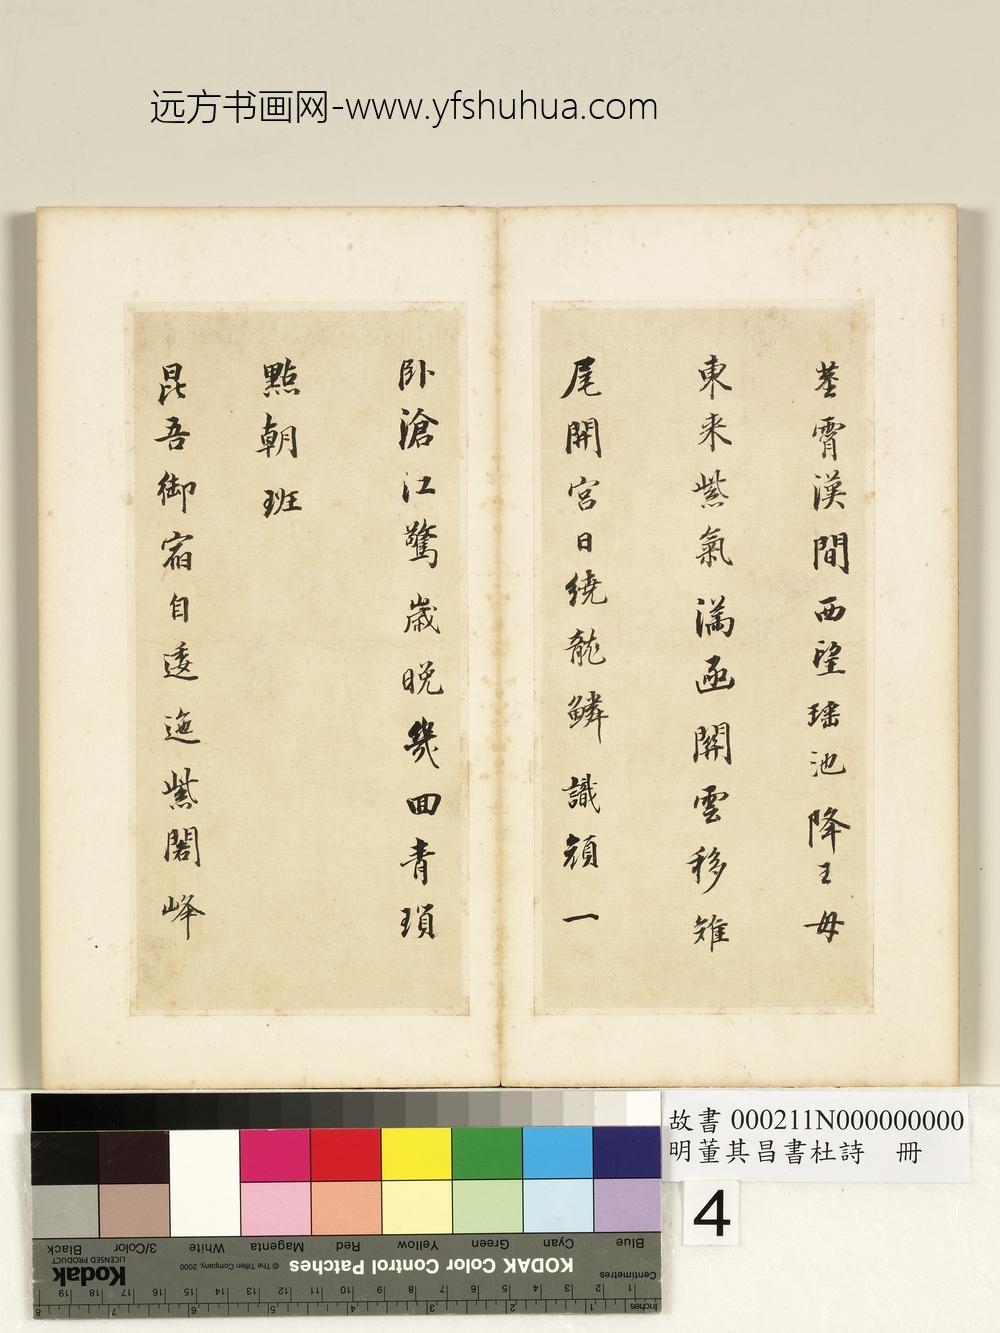 远方书画网-www.yfshuhua.com
莖霄漢間西望瑶池降王母
東来紫氣滿函關雲移雉
尾開宮日繞龍鱗識顏一
卧滄江驚歲晚幾回青瑣
點朝班
昆吾御宿自逶迤紫閣峰
故書 000211N000000000
明董其昌書杜詩 冊
4
Blue Cyan Green Yellow Red Magenta White 3/Color Black
KODAK Color Control Patches © The Tiffen Company, 2000 Kodak LICENSED PRODUCT
Centimetres 1 2 3 4 5 6 7 8 9 10 11 12 13 14 15 16 17 18 19
Inches 1 2 3 4 5 6 7 8